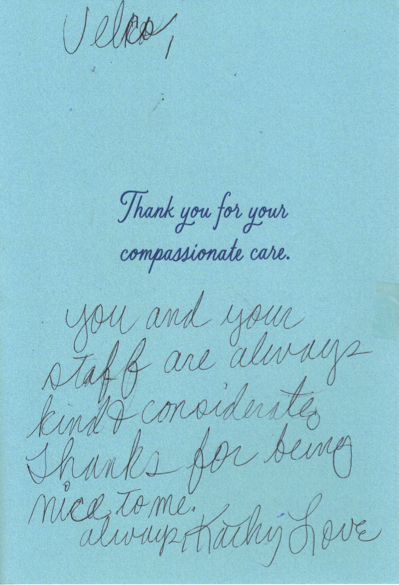 Velco,
Thank you for your
compassionate care.
you and your
staff are always
kind & considerate.
Thanks for being
nice to me.
always, Kathy Love